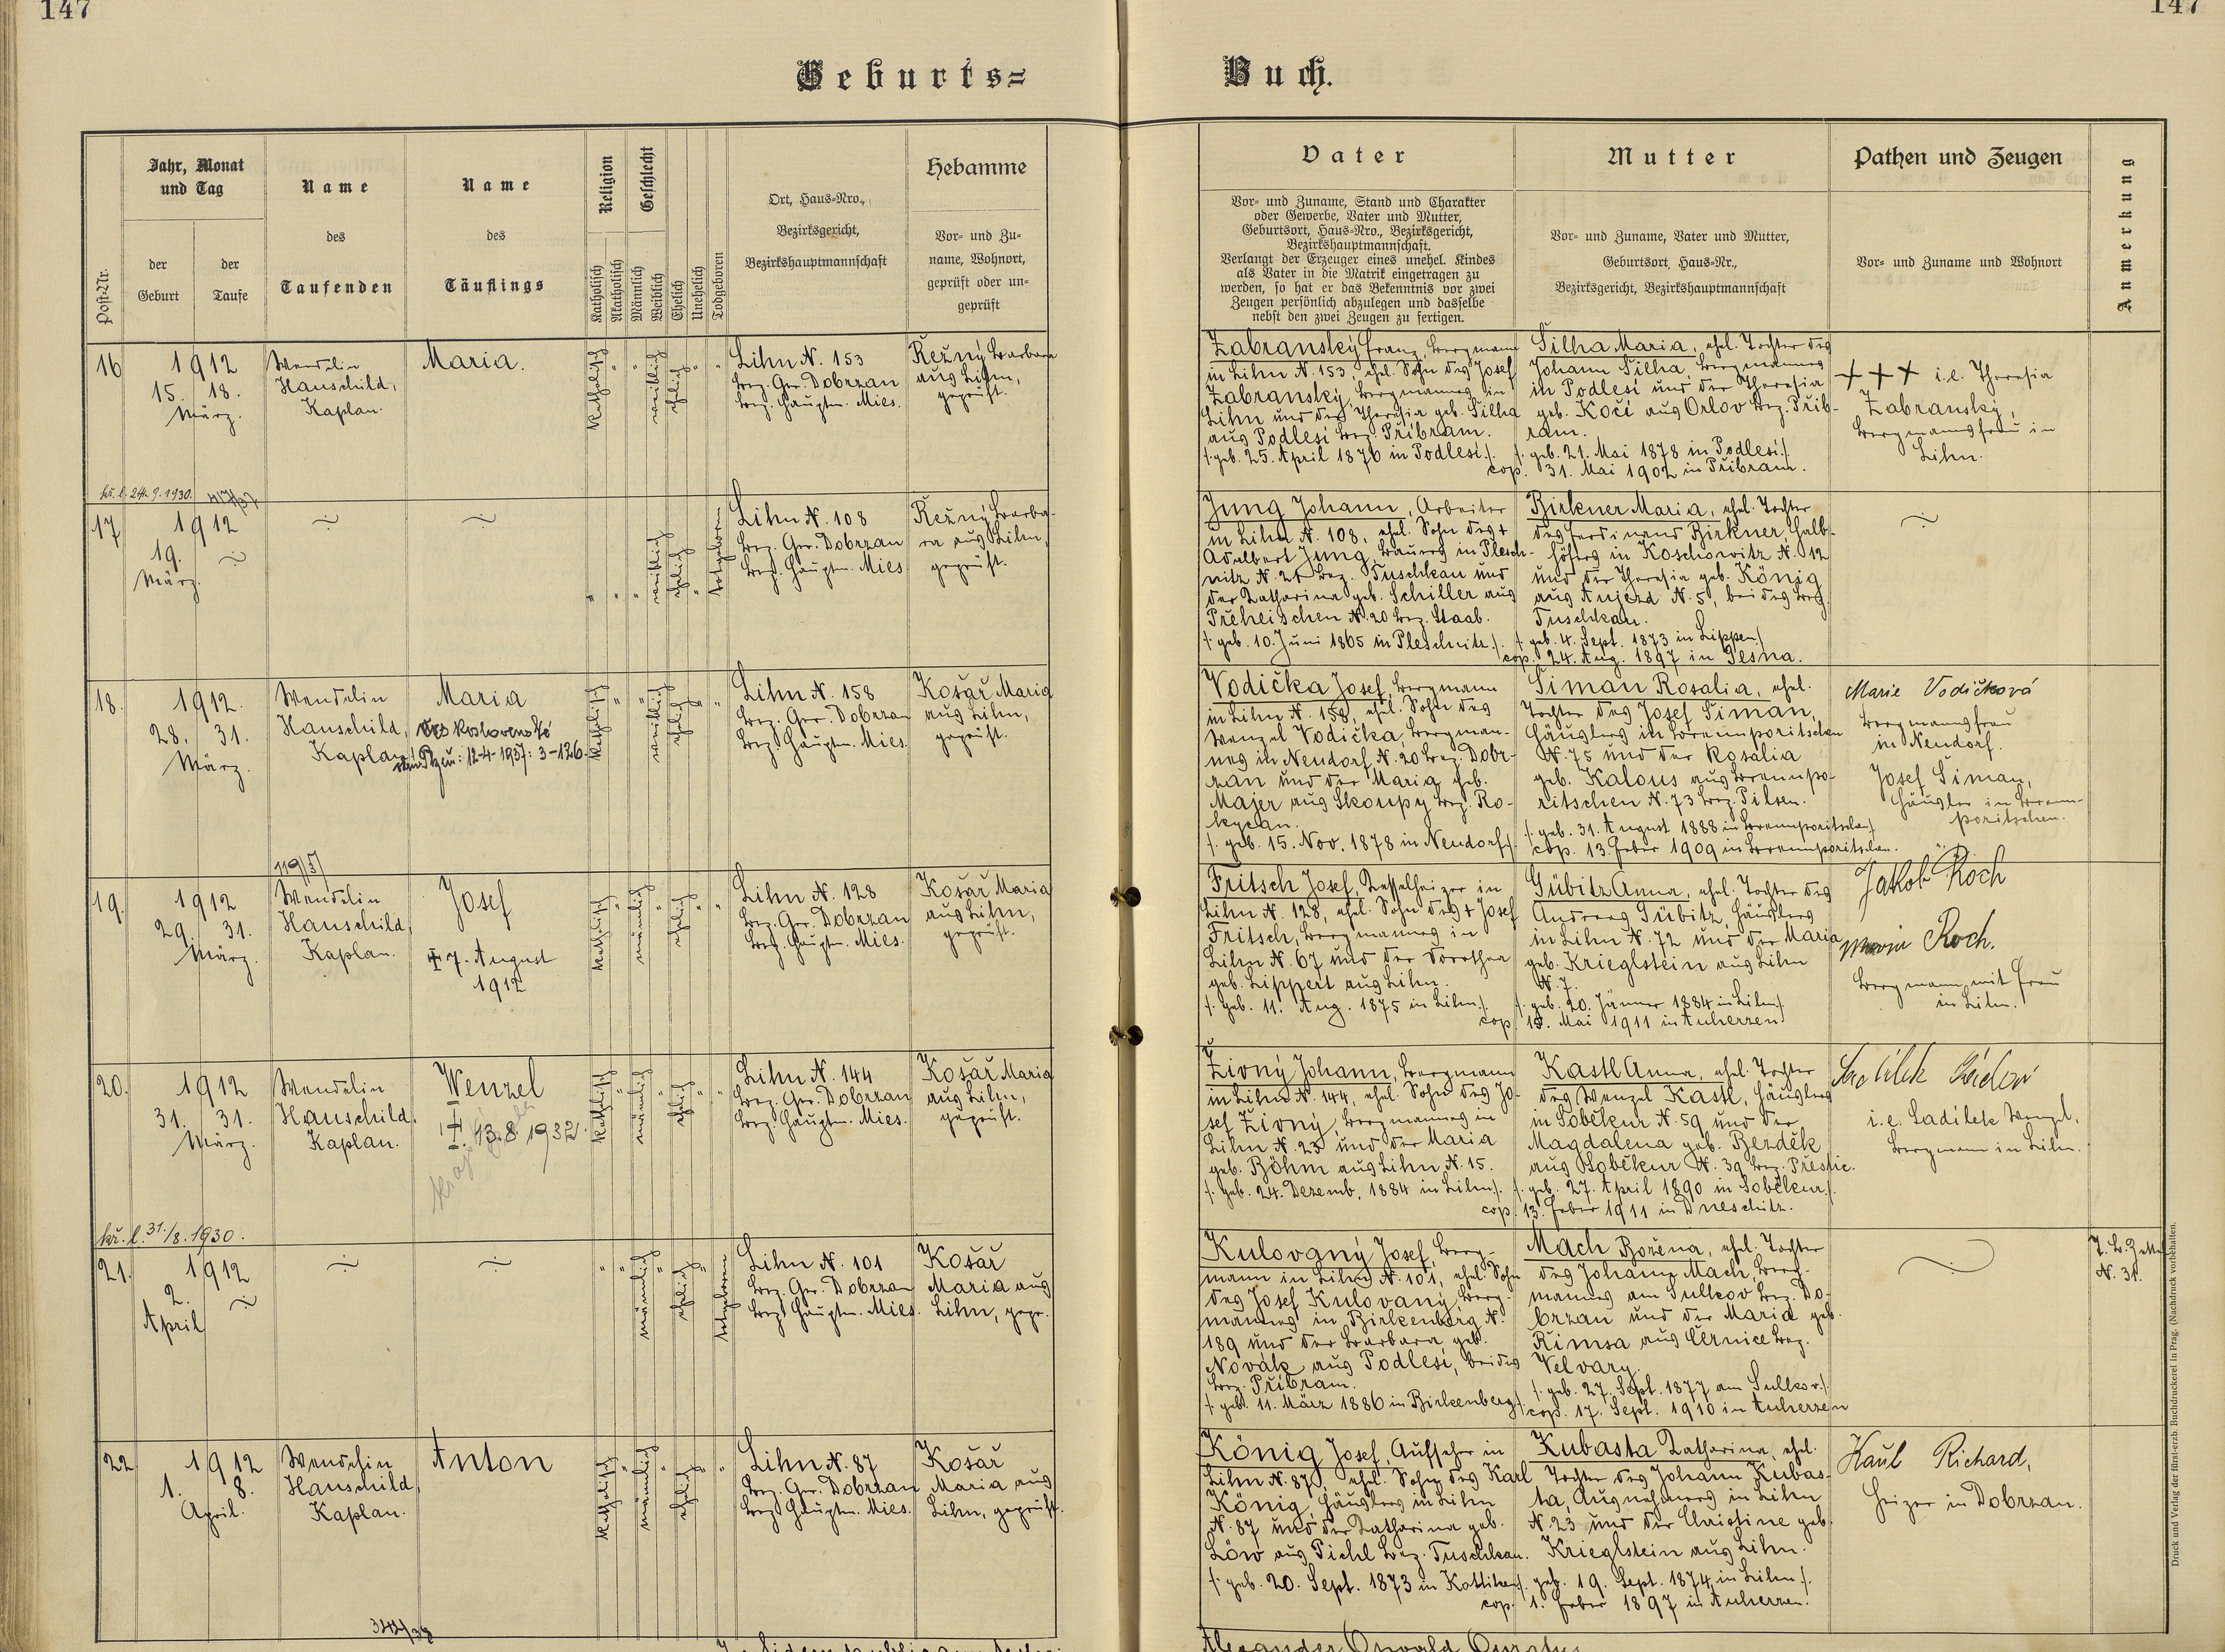 147
147
Geburts=
Buch.
Post-Nr.
Jahr, Monat
und Tag
der
Geburt
der
Taufe
Name
des
Taufenden
Name
des
Täuflings
Religion
Katholisch
Akatholisch
Geschlecht
Männlich
Weiblich
Ehelich
Unehelich
Todgeboren
Ort, Haus-Nro.,
Bezirksgericht,
Bezirkshauptmannschaft
Hebamme
Vor- und Zu-
name, Wohnort,
geprüft oder un-
geprüft
Vater
Vor- und Zuname, Stand und Charakter
oder Gewerbe, Vater und Mutter,
Geburtsort, Haus-Nro., Bezirksgericht,
Bezirkshauptmannschaft.
Verlangt der Erzeuger eines unehel. Kindes
als Vater in die Matrik eingetragen zu
werden, so hat er das Bekenntnis vor zwei
Zeugen persönlich abzulegen und dasselbe
nebst den zwei Zeugen zu fertigen.
Mutter
Vor- und Zuname, Vater und Mutter,
Geburtsort, Haus-Nr.,
Bezirksgericht, Bezirkshauptmannschaft
Pathen und Zeugen
Vor- und Zuname und Wohnort
Anmerkung
16
1912
15. 18.
März.
Wendelin
Hauschild,
Kaplan.
Maria.
katholisch
weiblich
ehelich
Lihn N. 153
Bez. Ger. Dobrzan
Bez. Hauptm. Mies.
Řežný Barbara
aus Lihn,
geprüft.
Zabranský Franz, Bergmann
in Lihn N. 153, ehel. Sohn des Josef
Zabranský, Bergmannes in
Lihn und der Theresia geb. Silha
aus Podlesí Bez. Příbram.
/: geb. 25. April 1876 in Podlesí :/
Šilha Maria, ehel. Tochter des
Johann Šilha, Bergmannes
in Podlesí und der Theresia
geb. Kočí aus Orlov Bez. Příb-
ram.
/: geb. 21. Mai 1878 in Podlesí :/
cop. 31. Mai 1902 in Příbram.
+++ i.e. Theresia
Zabranský,
Bergmannsfrau in
Lihn.
kř. l. 24. 9. 1930.
17
1912
19.
März.
weiblich
ehelich
totgeboren
Lihn N. 108
Bez. Ger. Dobrzan
Bez. Hauptm. Mies
Řežný Barba-
ra aus Lihn,
geprüft.
Jung Johann, Arbeiter
in Lihn N. 108, ehel. Sohn des +
Adalbert Jung, Bauers in Plesch-
nitz N. 21 Bez. Tuschkau und
der Katharina geb. Schiller aus
Preheischen N. 20 Bez. Staab.
/: geb. 10. Juni 1865 in Pleschnitz :/
Birkner Maria, ehel. Tochter
des Ferdinand Birkner, Halb-
höfers in Koschowitz N. 12
und der Theresia geb. König
aus Aujezd N. 5, beides Bez.
Tuschkau.
/: geb. 4. Sept. 1873 in Lippen :/
cop. 24. Aug. 1897 in Tesna.
18.
1912.
28. 31.
März.
Wendelin
Hauschild,
Kaplan.
Maria
12-4-1937: 3-126.
katholisch
weiblich
ehelich
Lihn N. 158
Bez. Ger. Dobrzan
Bez. Hauptm. Mies
Košař Maria
aus Lihn,
geprüft.
Vodička Josef, Bergmann
in Lihn N. 158, ehel. Sohn des
Wenzel Vodička, Bergman-
nes in Neudorf N. 20 Bez. Dobr-
zan und der Maria geb.
Majer aus Skoupy Bez. Ro-
kycan.
/: geb. 15. Nov. 1878 in Neudorf :/
Šiman Rosalia, ehel.
Tochter des Josef Šiman,
Häuslers in Brennporitschen
N. 75 und der Rosalia
geb. Kalous aus Brennpo-
ritschen N. 73 Bez. Pilsen.
/: geb. 31. August 1888 in Brennporitschen :/
cop. 13. Feber 1909 in Brennporitschen.
Marie Vodičková
Bergmannsfrau
in Neudorf.
Josef Šiman,
Häusler in Brenn-
poritschen.
119/37
19.
1912
29. 31.
März.
Wendelin
Hauschild,
Kaplan.
Josef
7. August
1912
katholisch
männlich
ehelich
Lihn N. 128
Bez. Ger. Dobrzan
Bez. Hauptm. Mies.
Košař Maria
aus Lihn,
geprüft.
Fritsch Josef, Kesselheizer in
Lihn N. 128, ehel. Sohn des + Josef
Fritsch, Bergmannes in
Lihn N. 67 und der Dorothea
geb. Lippert aus Lihn.
/: geb. 11. Aug. 1875 in Lihn :/
Gübitz Anna, ehel. Tochter des
Andreas Gübitz, Häuslers
in Lihn N. 72 und der Maria
geb. Krieglstein aus Lihn
N. 7.
/: geb. 20. Jänner 1884 in Lihn :/
cop. 15. Mai 1911 in Auherzen
Jakob Koch
Maria Koch.
Bergmann mit Frau
in Lihn.
20.
1912
31. 31.
März.
Wendelin
Hauschild,
Kaplan.
Wenzel
13. 8. 1932
katholisch
männlich
ehelich
Lihn N. 144
Bez. Ger. Dobrzan
Bez. Hauptm. Mies.
Košař Maria
aus Lihn,
geprüft.
Živný Johann, Bergmann
in Lihn N. 144, ehel. Sohn des Jo-
sef Živný, Bergmannes in
Lihn N. 23 und der Maria
geb. Böhm aus Lihn N. 15.
/: geb. 24. Dezemb. 1884 in Lihn :/
Kastl Anna, ehel. Tochter
des Wenzel Kastl, Häuslers
in Soběkur N. 59 und der
Magdalena geb. Bezděk
aus Soběkur N. 39 Bez. Přestic.
/: geb. 27. April 1890 in Soběkur :/
cop. 13. Feber 1911 in Dneschitz.
i.e. Sadílek Wenzel,
Bergmann in Lihn.
kř. l. 31./8. 1930.
21.
1912
2.
April
männlich
ehelich
totgeboren
Lihn N. 101
Bez. Ger. Dobrzan
Bez. Hauptm. Mies.
Košař
Maria aus
Lihn, gepr.
Kulovaný Josef, Berg-
mann in Lihn N. 101, ehel. Sohn
des Josef Kulovaný, Berg-
mannes in Birkenberg N.
189 und der Barbara geb.
Novák aus Podlesí, beides
Bez. Příbram.
/: geb. 11. März 1886 in Birkenberg :/
Mach Božena, ehel. Tochter
des Johann Mach, Berg-
mannes am Sulkov Bez. Do-
brzan und der Maria geb.
Řimsa aus Černice Bez.
Velvary.
/: geb. 27. Sept. 1877 am Sulkov :/
cop. 17. Sept. 1910 in Auherzen
N. 31.
22
1912
1. 8.
April.
Wendelin
Hauschild,
Kaplan.
Anton
katholisch
männlich
ehelich
Lihn N. 87
Bez. Ger. Dobrzan
Bez. Hauptm. Mies.
Košař
Maria aus
Lihn, geprüft.
König Josef, Aufseher in
Lihn N. 87, ehel. Sohn des Karl
König, Häuslers in Lihn
N. 87 und der Katharina geb.
Löw aus Pichl Bez. Tuschkau.
/: geb. 20. Sept. 1873 in Kottiken :/
Kubasta Katharina, ehel.
Tochter des Johann Kubas-
ta, Ausnehmers in Lihn
N. 23 und der Christine geb.
Krieglstein aus Lihn.
/: geb. 19. Sept. 1874 in Lihn :/
cop. 1. Feber 1897 in Auherzen.
Haul Richard,
Heizer in Dobrzan.
Druck und Verlag der fürst-erzb. Buchdruckerei in Prag. (Nachdruck vorbehalten.